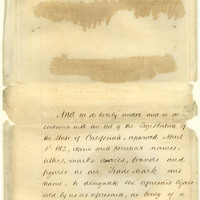 And we do hereby under and in ac-
cordance with an act of the Legislature of
the State of California, approved April
1st 1863, claim said peculiar names,
letters, marks, devices, brands and
figures as our Trade Mark and
name, to designate the aforesaid Cigars
sold by us as aforesaid, as being of a